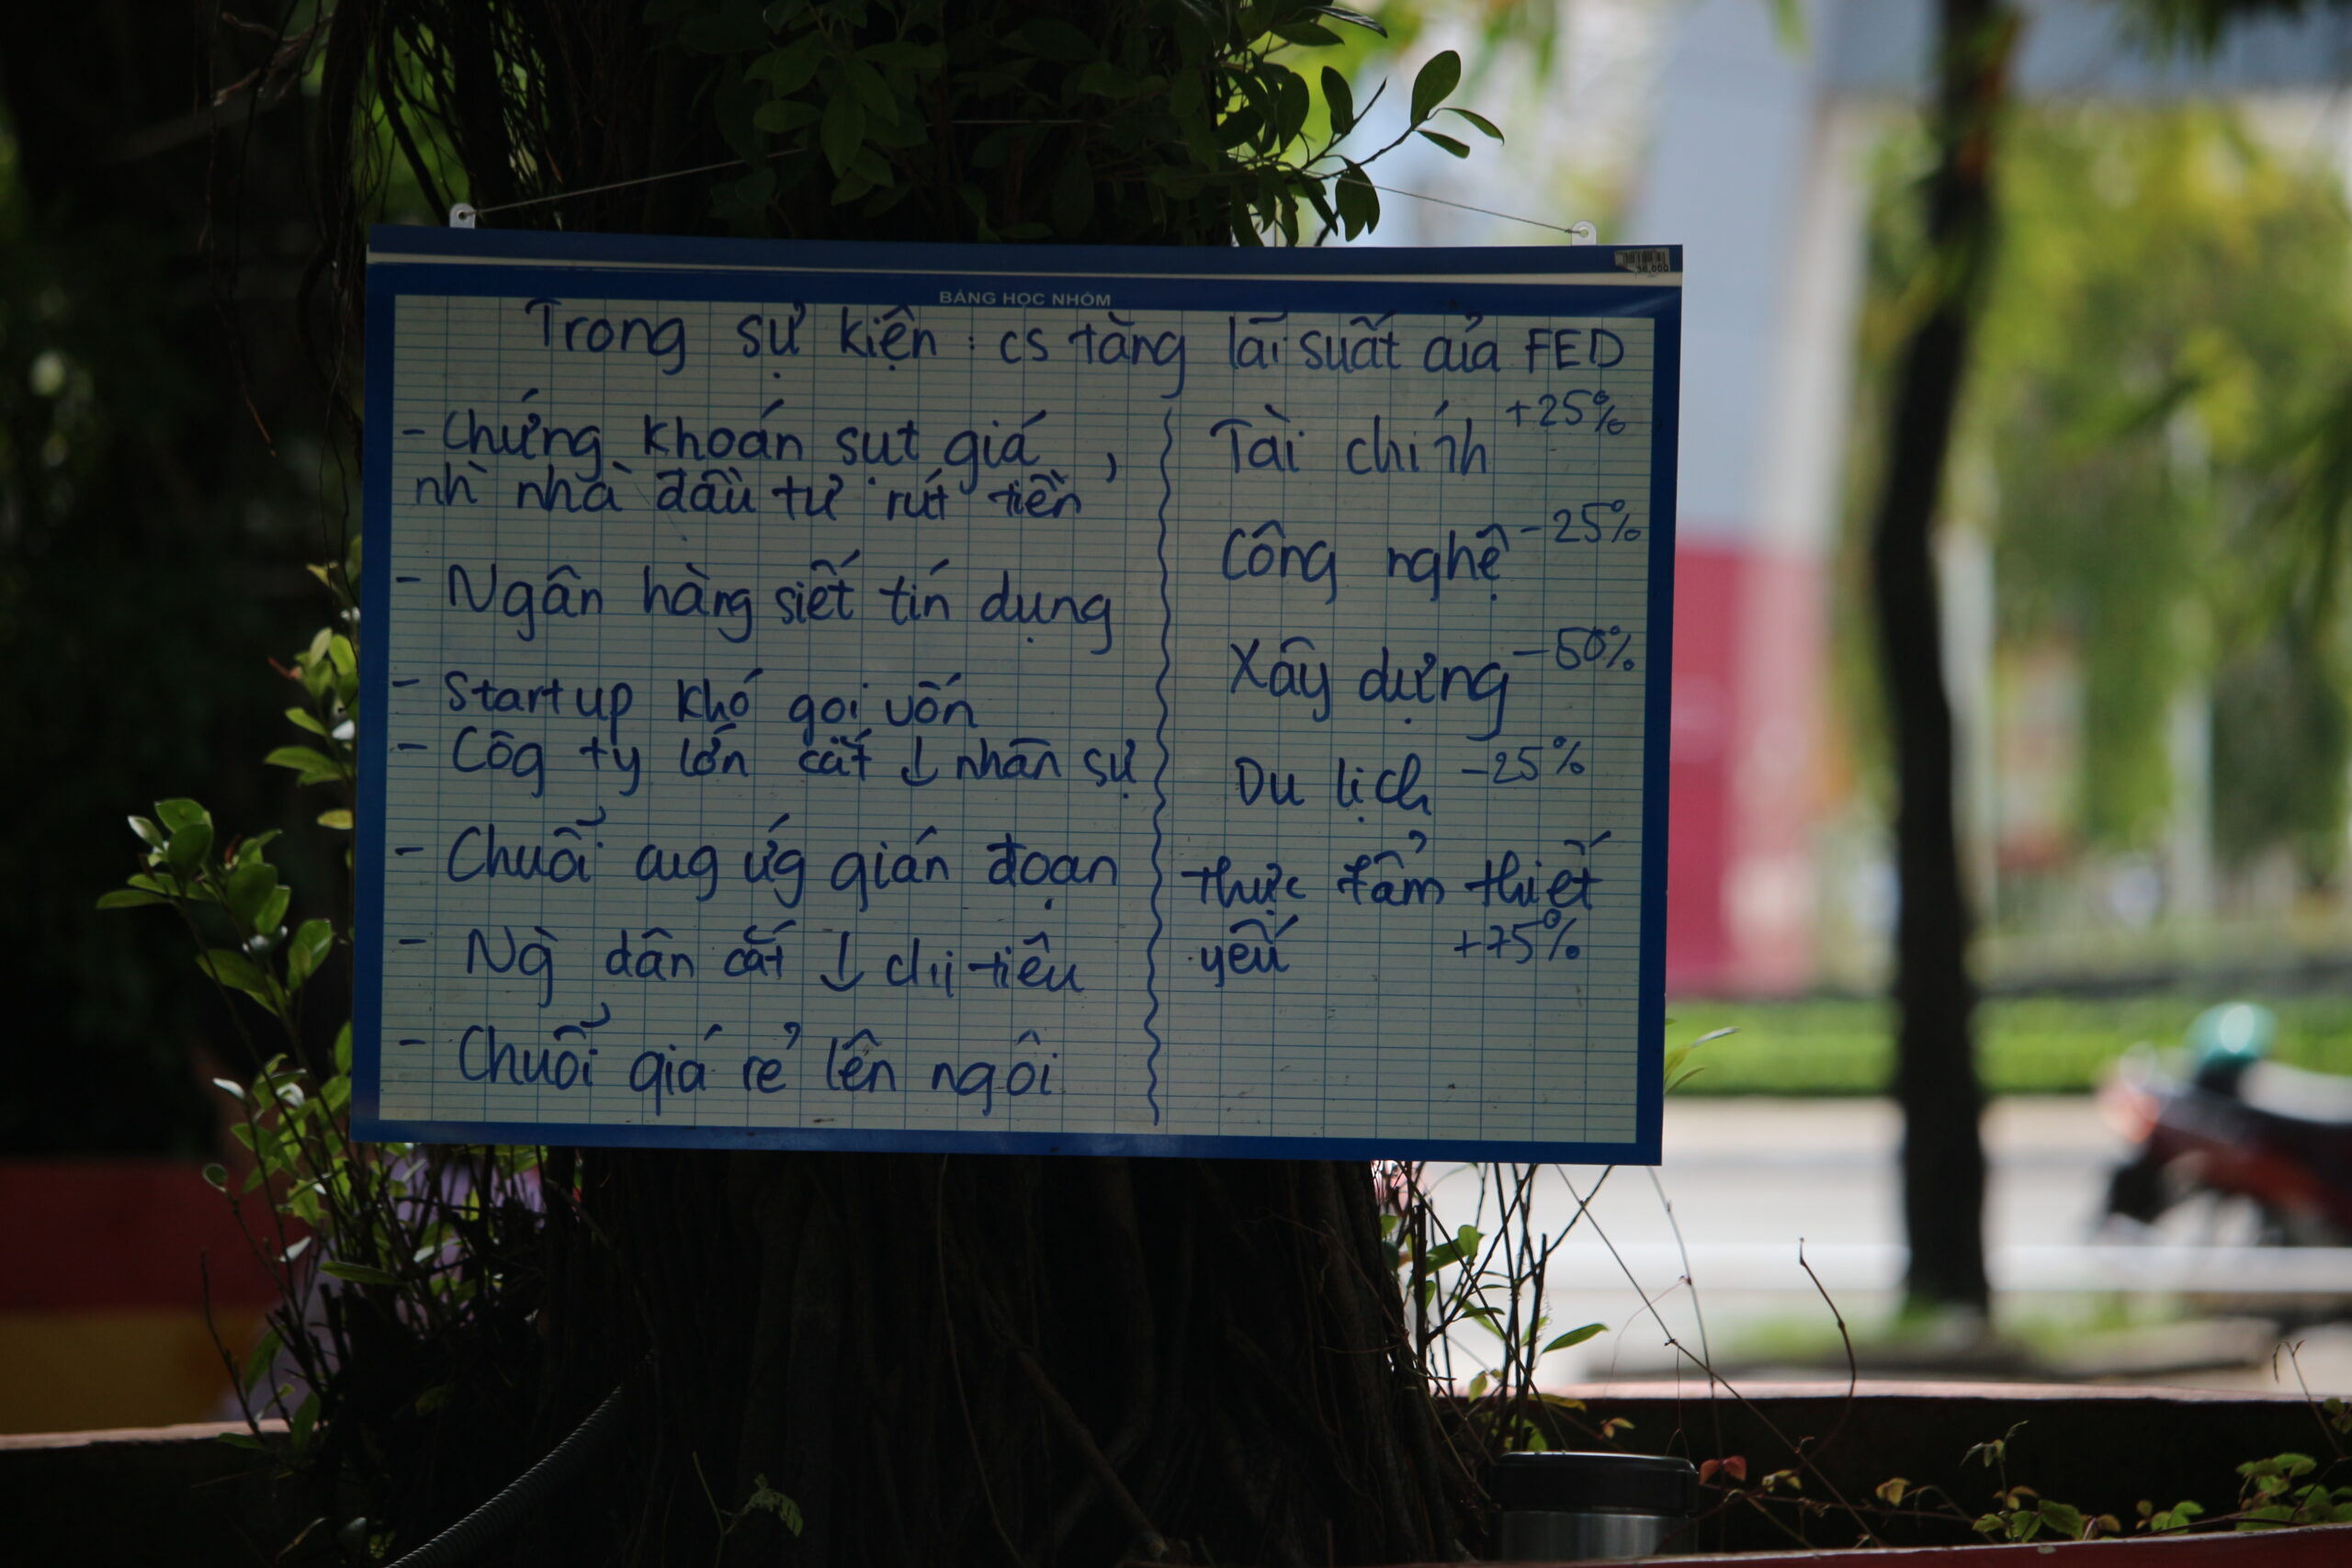 BẢNG HỌC NHÓM
Trong sự kiện : cs tăng lãi suất của FED
- Chứng khoán sụt giá,
nh` nhà đầu tư rút tiền
- Ngân hàng siết tín dụng
- Startup khó gọi vốn
- Côg ty lớn cắt ↓ nhân sự
- Chuỗi cug ứg gián đoạn
- Ng` dân cắt ↓ chi tiêu
- Chuỗi giá rẻ lên ngôi
Tài chính +25%
Công nghệ -25%
Xây dựng -50%
Du lịch -25%
thực fẩm thiết
yếu +75%